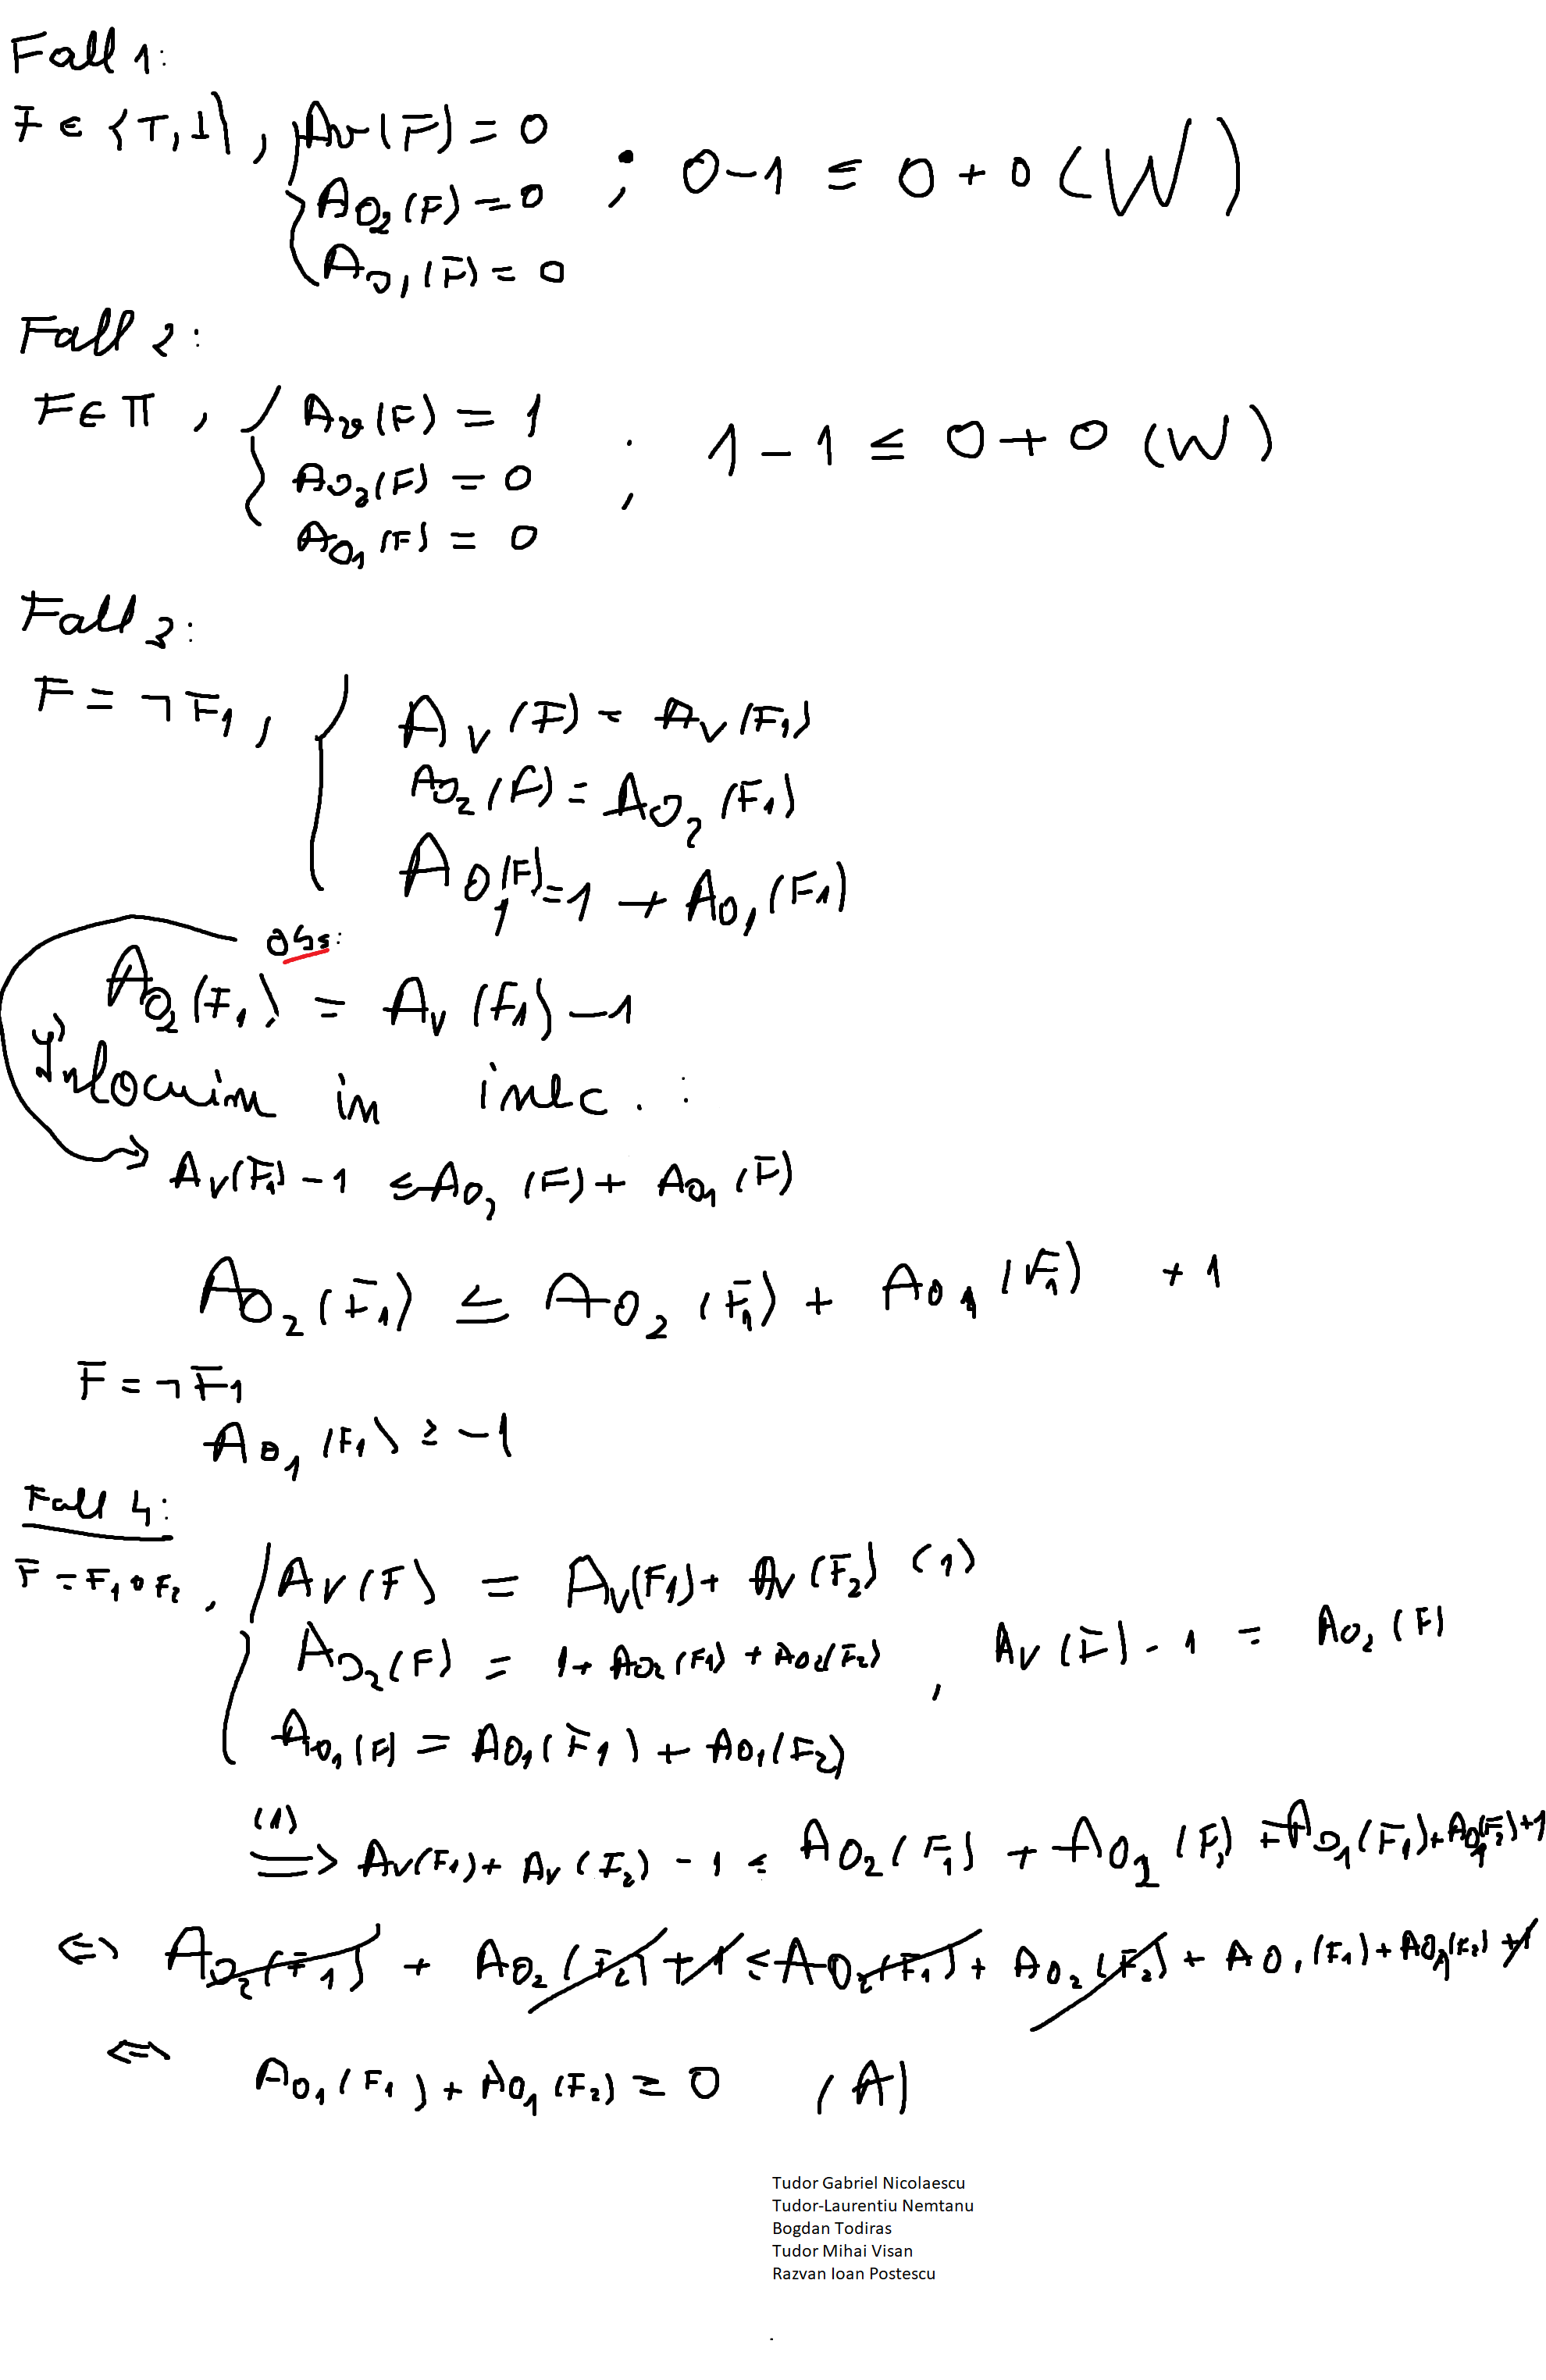 Fall 1:
F ∈ {⊤, ⊥}, { Av(F) = 0
A_O2(F) = 0 ; 0-1 ≤ 0+0 (W)
A_O1(F) = 0
Fall 2:
F ∈ Π, { Av(F) = 1
A_O2(F) = 0 ; 1-1 ≤ 0+0 (W)
A_O1(F) = 0
Fall 3:
F = ¬F1, { Av(F) = Av(F1)
A_O2(F) = A_O2(F1)
A_O1(F) = 1 + A_O1(F1)
Obs:
A_O2(F1) = Av(F1) - 1
Înlocuim in inec. :
Av(F1) - 1 ≤ A_O2(F) + A_O1(F)
A_O2(F1) ≤ A_O2(F1) + A_O1(F1) + 1
F = ¬F1
A_O1(F1) ≥ -1
Fall 4:
F = F1 ∘ F2, { Av(F) = Av(F1) + Av(F2) (1)
A_O2(F) = 1 + A_O2(F1) + A_O2(F2) , Av(F) - 1 = A_O2(F)
A_O1(F) = A_O1(F1) + A_O1(F2)
(1) ⟹ Av(F1) + Av(F2) - 1 ≤ A_O2(F1) + A_O2(F2) + A_O1(F1) + A_O1(F2) + 1
⇔ A_O2(F1) + A_O2(F2) + 1 ≤ A_O2(F1) + A_O2(F2) + A_O1(F1) + A_O1(F2) + 1
⇔ A_O1(F1) + A_O1(F2) ≥ 0 (A)
Tudor Gabriel Nicolaescu
Tudor-Laurentiu Nemtanu
Bogdan Todiras
Tudor Mihai Visan
Razvan Ioan Postescu